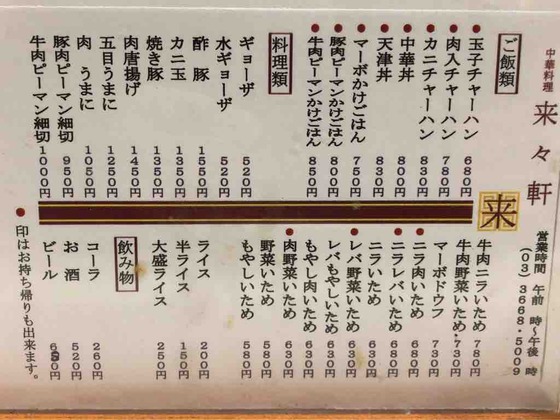 中華料理
来々軒
営業時間 午前 時〜午後 時
(03) 3668-5009
来
ご飯類
玉子チャーハン 680円
肉入チャーハン 780円
カニチャーハン 830円
中華丼 800円
天津丼 830円
マーボかけごはん 750円
豚肉ピーマンかけごはん 800円
牛肉ピーマンかけごはん 850円
料理類
ギョーザ 520円
水ギョーザ 520円
酢豚 1550円
カニ玉 1350円
焼き豚 1350円
肉唐揚げ 1450円
五目うまに 1250円
肉うまに 1050円
豚肉ピーマン細切 950円
牛肉ピーマン細切 1000円
牛肉ニラいため 780円
牛肉野菜いため 730円
マーボドウフ 730円
ニラ肉いため 680円
ニラレバいため 680円
ニラいため 630円
レバ野菜いため 630円
レバもやしいため 630円
もやし肉いため 630円
肉野菜いため 630円
野菜いため 580円
もやしいため 580円
ライス 200円
半ライス 150円
大盛ライス 250円
飲み物
コーラ 260円
お酒 520円
ビール
●印はお持ち帰りも出来ます。